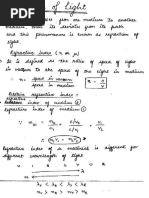 of Light
passes from one medium to another
medium, then its deviation from its path
and this phenomenon is known as refraction of
light.
Refractive index (n or μ)
It is defined as the ratio of speed of light
in vacuum to the speed of the light in medium
n = speed in vacuum / speed in medium
n = c/v
Relative refractive index :-
Refractive index of medium ①
refractive index of medium ②
n₂₁ = n₂/n₁ = c/v₂ / c/v₁ = v₁/v₂
Refractive index of a medium is different for
different wavelength of light
V I B G Y O R